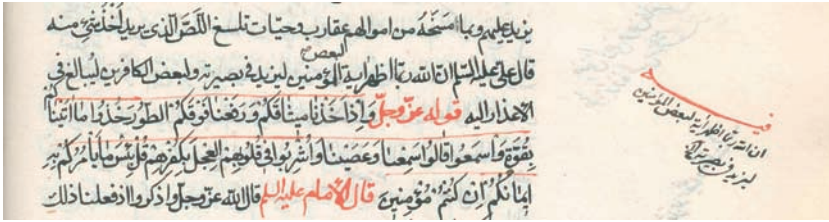 يزيد عليهم وبما مسخه من اموالهم عقارب وحيات تلسع اللص الذى يريد اخذ شئ منه
قال على عليه السلم ان الله ربما اظهر اية لبعض المؤمنين ليزيد فى بصيرته ولبعض الكافرين ليبالغ فى
الاعذار اليه قوله عز وجل وَاِذْ اَخَذْنَا مِيثَاقَكُمْ وَرَفَعْنَا فَوْقَكُمُ الطُّورَ خُذُوا مَا اٰتَيْنَاكُمْ
بِقُوَّةٍ وَاسْمَعُوا قَالُوا سَمِعْنَا وَعَصَيْنَا وَاُشْرِبُوا فِى قُلُوبِهِمُ الْعِجْلَ بِكُفْرِهِمْ قُلْ بِئْسَمَا يَاْمُرُكُمْ بِهِ
اِيمَانُكُمْ اِنْ كُنْتُمْ مُؤْمِنِينَ قال الامام عليه السلم قال الله عز وجل واذكروا اذ فعلنا ذلك
ان الله ربما اظهر اية لبعض المؤمنين
ليزيد فى بصيرته